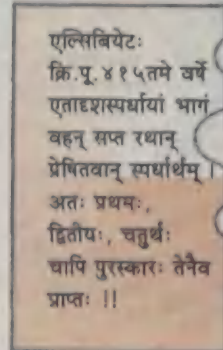 एल्सिबियेटः
क्रि.पू.४१५तमे वर्षे
एतादृशस्पर्धायां भागं
वहन् सप्त रथान्
प्रेषितवान् स्पर्धार्थम् ।
अतः प्रथमः,
द्वितीयः, चतुर्थः
चापि पुरस्कारः तेनैव
प्राप्तः !!